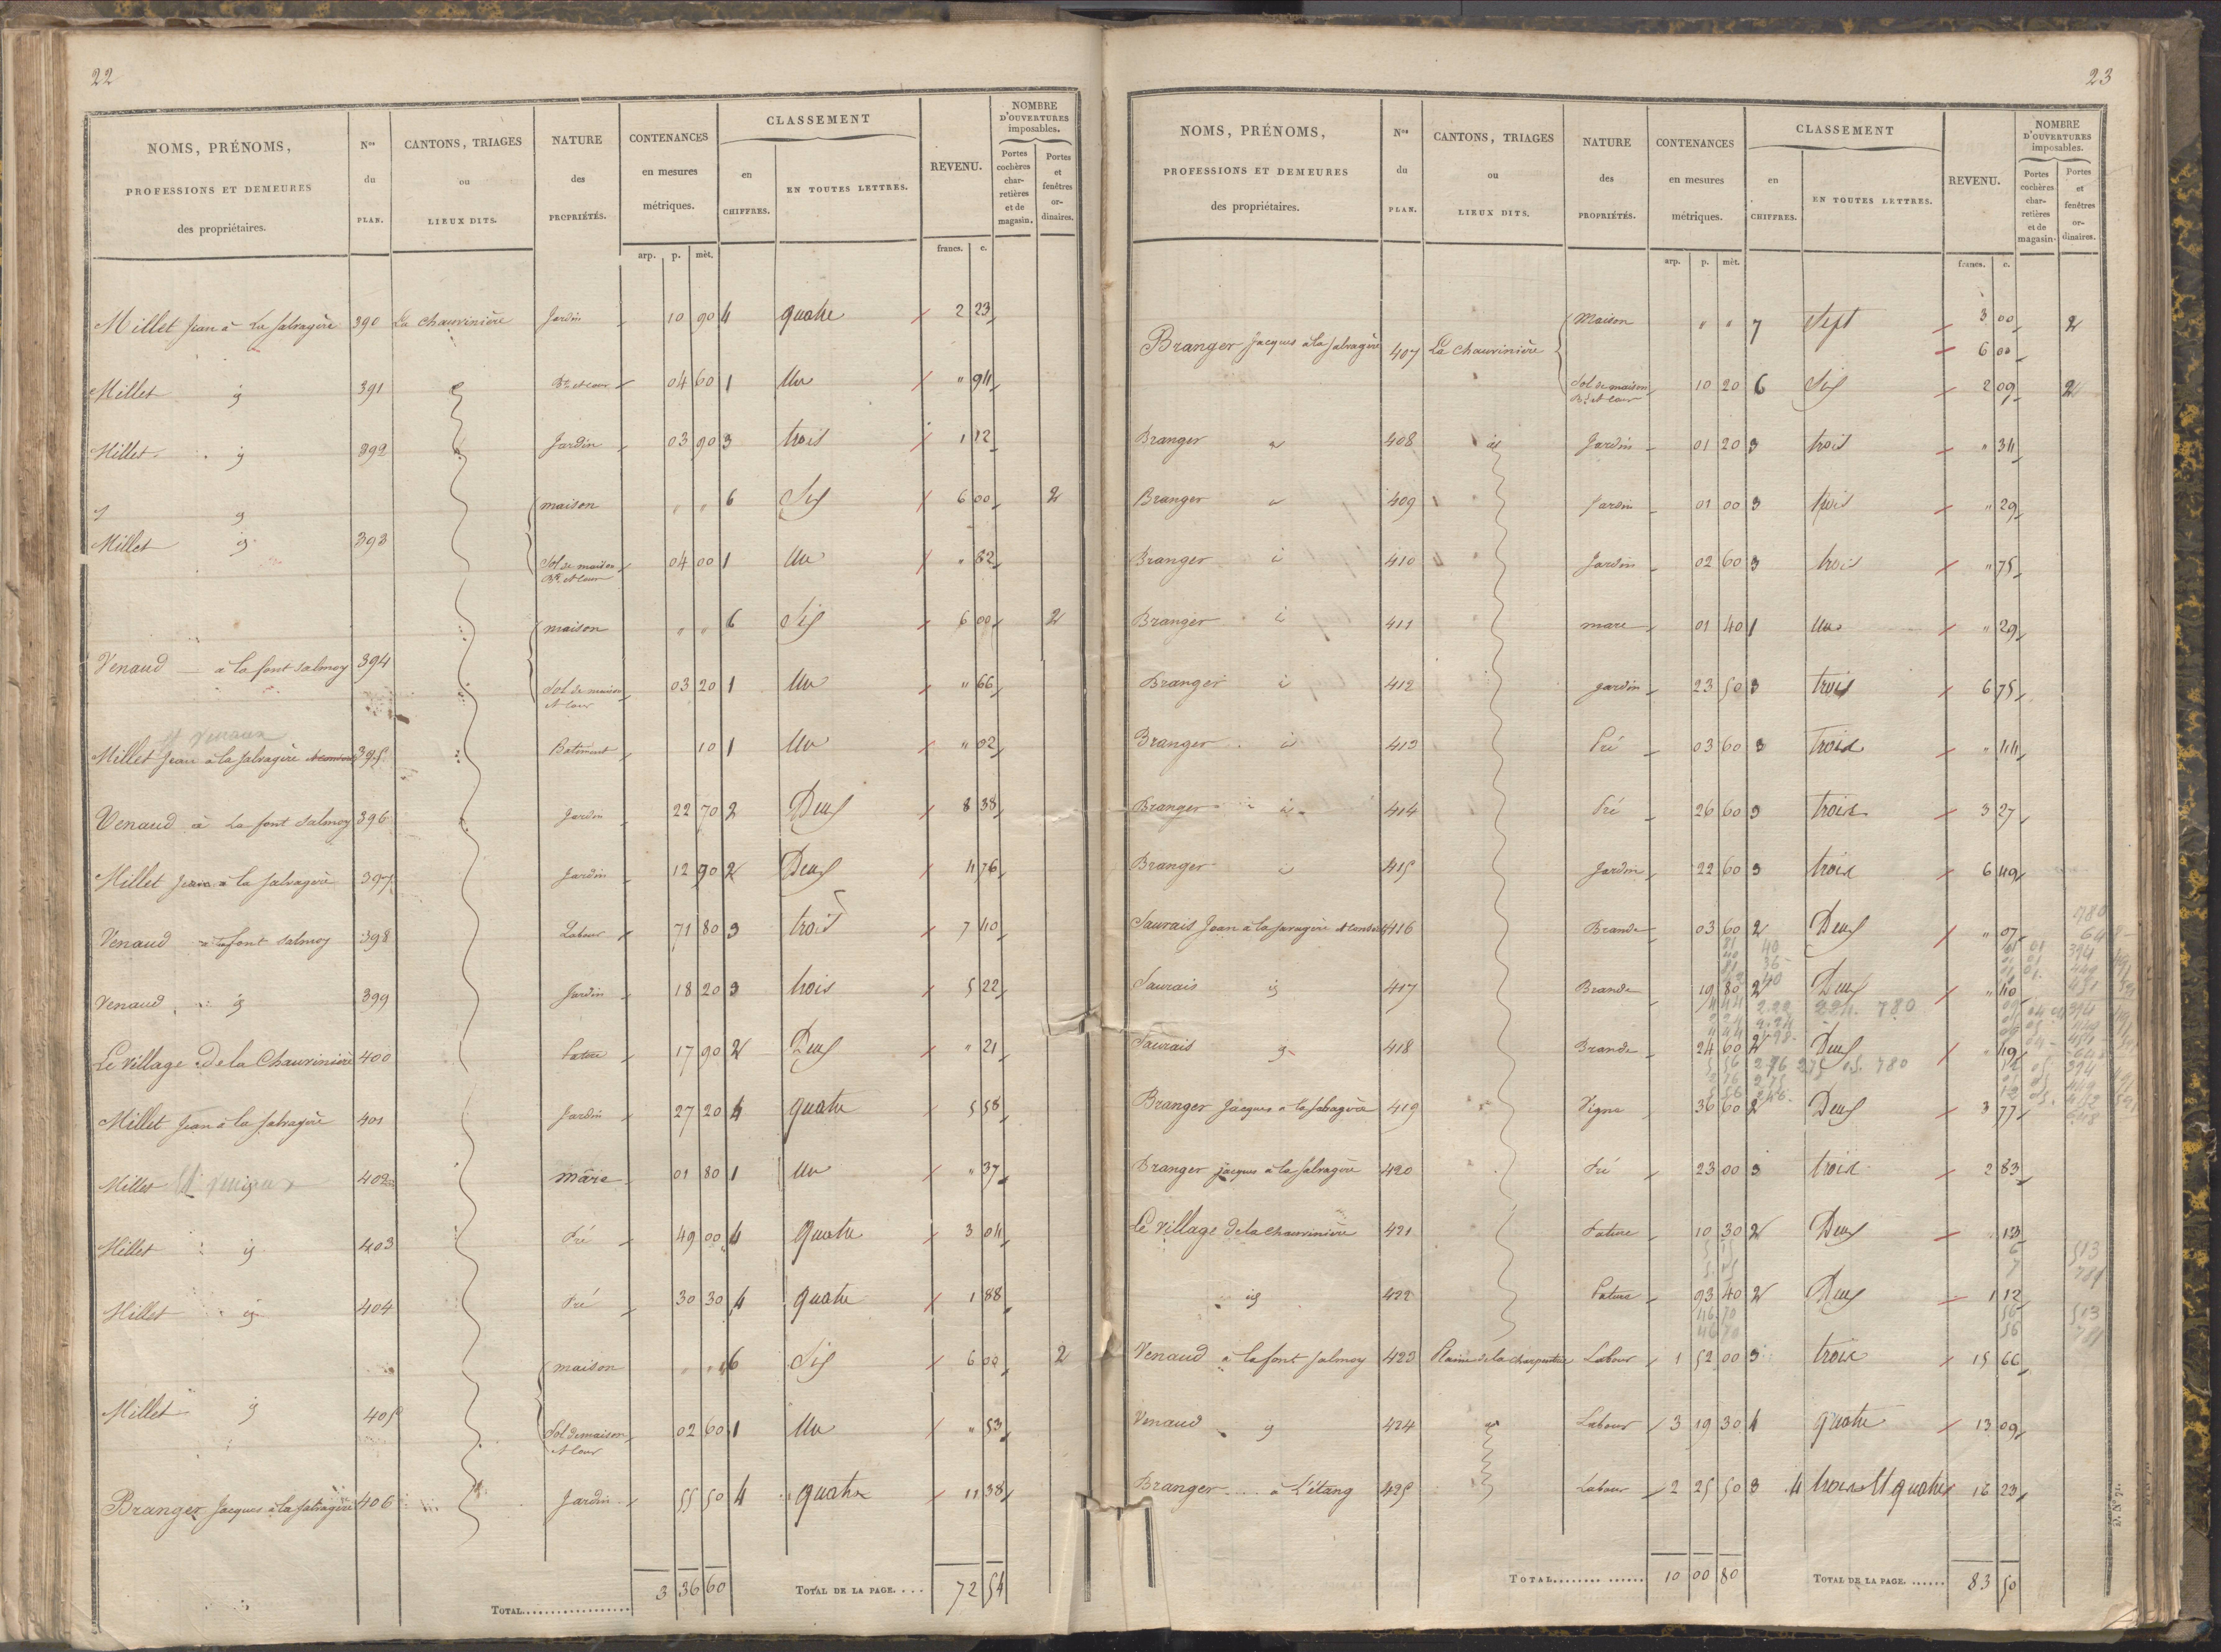 22
NOMS, PRÉNOMS, PROFESSIONS ET DEMEURES des propriétaires.
Nos du PLAN.
CANTONS, TRIAGES ou LIEUX DITS.
NATURE des PROPRIÉTÉS.
CONTENANCES en mesures métriques.
CLASSEMENT
en CHIFFRES.
EN TOUTES LETTRES.
REVENU.
NOMBRE D'OUVERTURES imposables.
Portes cochères char-retières et de magasin.
Portes et fenêtres or-dinaires.
arp. p. mèt. francs. c.
Millet Jean à la Salvagère 390 La Chauvinière Jardin 10 90 4 quatre 2 23
Millet id 391 Bt et cour 04 60 1 Un " 94
Millet id 392 Jardin 03 90 3 trois 1 12
maison " " 6 Six 6 00 2
Millet id 393
Sol de maison Bt et Cour 04 00 1 Un " 82
maison " " 6 Six 6 00 2
Venaud à la font salmoy 394
Sol de maison et Cour 03 20 1 Un " 66
et venaux
Millet Jean à la Salvagère 395 Batiment 10 1 Un " 02
Venaud à la font Salmoy 396 Jardin 22 70 2 Deux 8 38
Millet Jean à la Salvagère 397 Jardin 12 90 2 Deux 4 76
Venaud à la font salmoy 398 Labour 71 80 3 trois 7 40
Venaud id 399 Jardin 18 20 3 trois 5 22
Le village De la Chauvinière 400 Pature 17 90 2 Deux " 21
Millet Jean à la Salvagère 401 Jardin 27 20 4 quatre 5 58
Millet 402 mare 01 80 1 Un " 37
Millet id 403 Pré 49 00 4 quatre 3 04
Millet id 404 Pré 30 30 4 quatre 1 88
maison " " 6 Six 6 00 2
Millet id 405
Sol de maison et Cour 02 60 1 Un " 53
Branger Jacques à la Salvagère 406 Jardin 55 50 4 quatre 11 38
TOTAL 3 36 60 TOTAL DE LA PAGE. . . . 72 54
23
NOMS, PRÉNOMS, PROFESSIONS ET DEMEURES des propriétaires.
Nos du PLAN.
CANTONS, TRIAGES ou LIEUX DITS.
NATURE des PROPRIÉTÉS.
CONTENANCES en mesures métriques.
CLASSEMENT
en CHIFFRES.
EN TOUTES LETTRES.
REVENU.
NOMBRE D'OUVERTURES imposables.
Portes cochères char-retières et de magasin.
Portes et fenêtres or-dinaires.
arp. p. mèt. francs. c.
Maison " " 7 Sept 3 00 2
Branger Jacques à la Salvagère 407 La Chauvinière 6 00
Sol de maison Bt et Cour 10 20 6 Six 2 09 2
Branger id 408 id Jardin 01 20 3 trois " 34
Branger id 409 Jardin 01 00 3 trois " 29
Branger id 410 Jardin 02 60 3 trois " 75
Branger id 411 mare 01 40 1 Un " 29
Branger id 412 Jardin 23 50 3 trois 6 75
Branger id 413 Pré 03 60 3 trois " 44
Branger id 414 Pré 26 60 3 trois 3 27
Branger id 415 Jardin 22 60 3 trois 6 49
Saurais Jean à la Savagère 416 Brande 03 60 2 Deux " 07
Saurais id 417 Brande 19 80 2 Deux " 40
Saurais id 418 Brande 24 60 2 Deux " 49
Branger Jacques à la Salvagère 419 Vigne 36 60 2 Deux 3 77
Branger Jacques à la Salvagère 420 Pré 23 00 3 trois 2 83
Le village de la Chauvinière 421 Pature 10 30 2 Deux " 13
id 422 Pature 93 40 2 Deux 1 12
Venaud à la font Salmoy 423 Plaine de la charpentrie Labour 1 52 00 3 trois 15 66
Venaud id 424 id Labour 3 19 30 4 quatre 13 09
Branger à L'étang 425 Labour 2 25 50 3 4 trois et quatre 16 23
TOTAL 10 00 80 TOTAL DE LA PAGE. 83 50